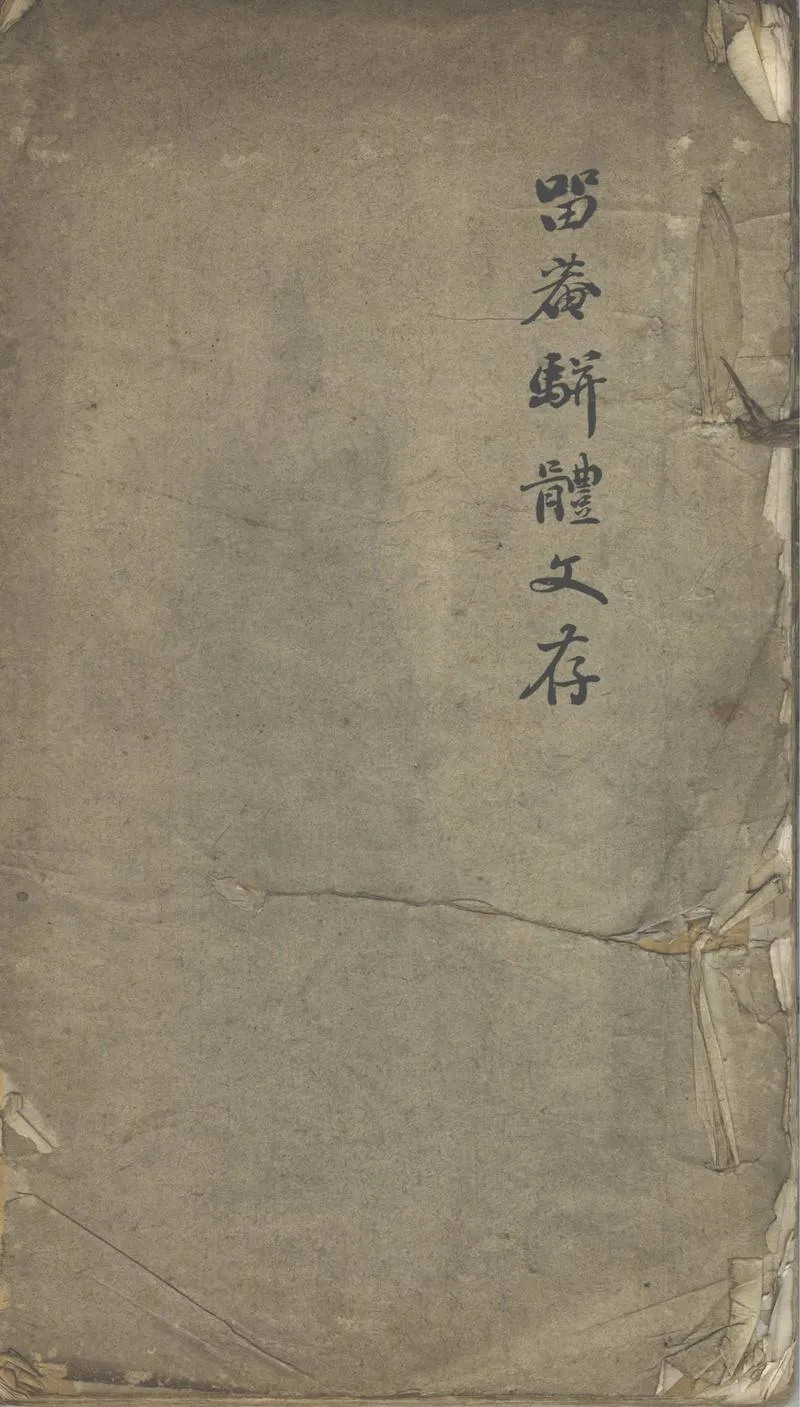 畱菴駢體文存